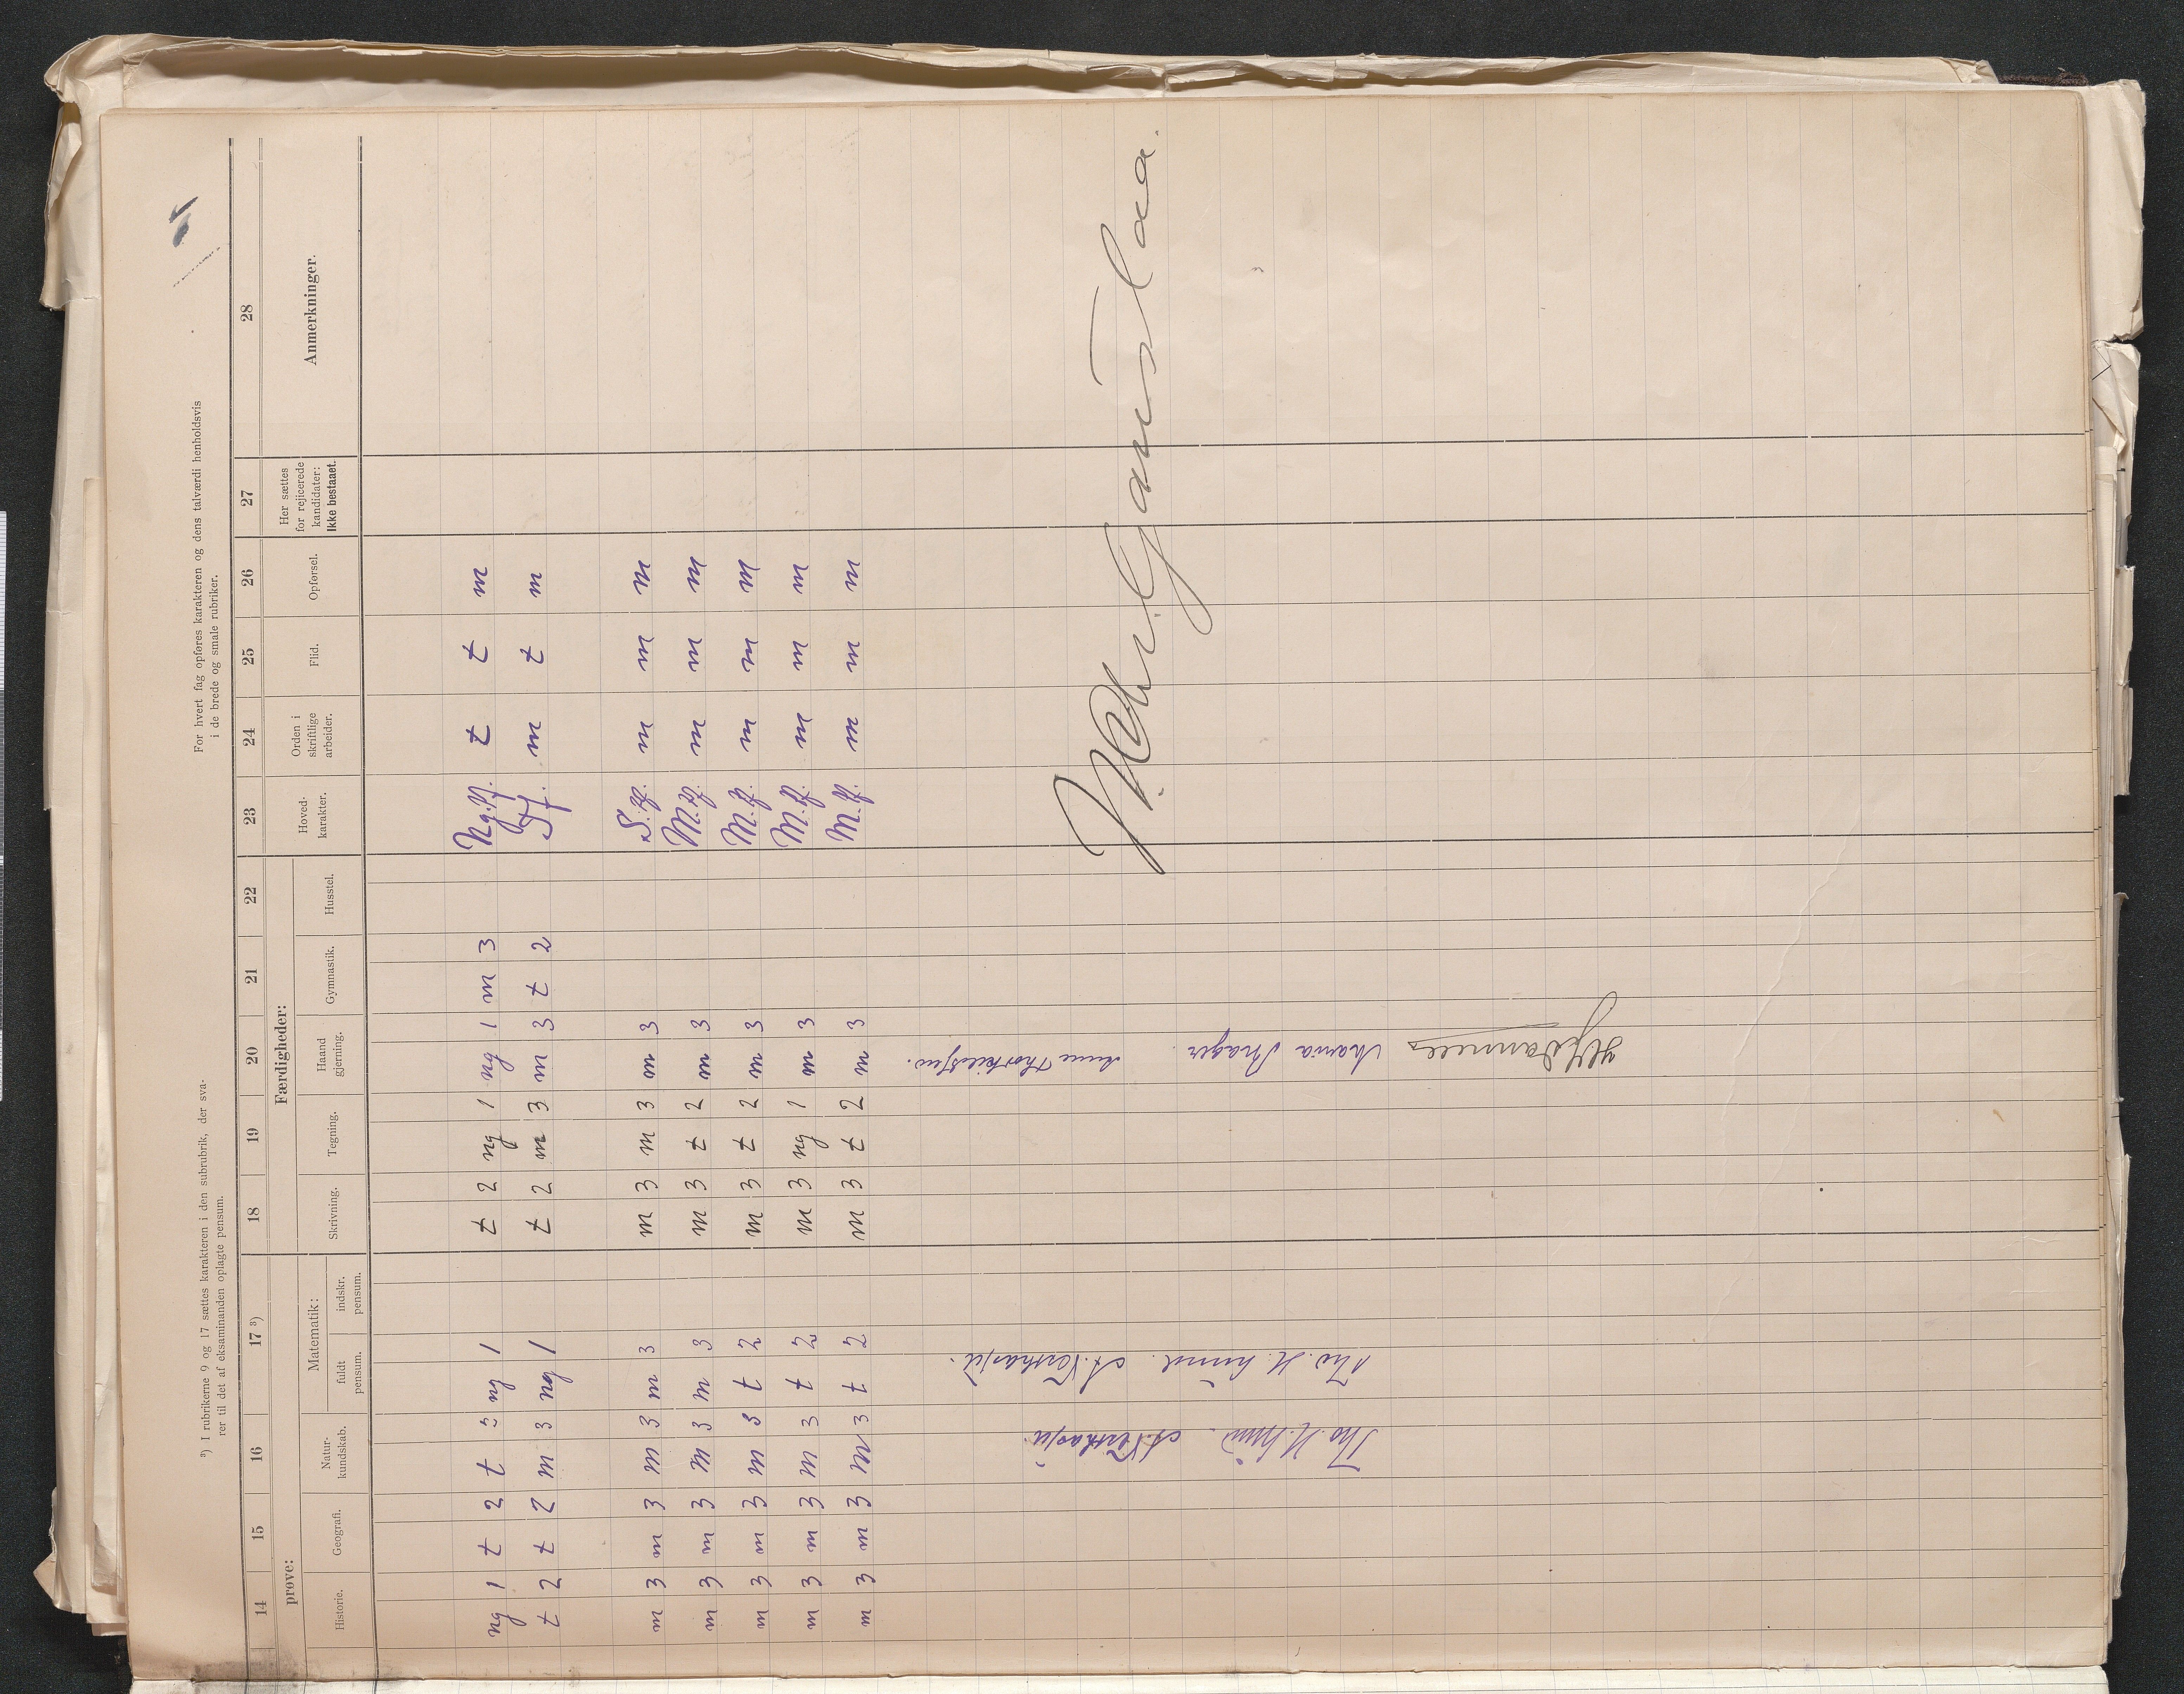 ³) I rubrikerne 9 og 17 sættes karakteren i den subrubrik, der sva-
rer til det af eksaminanden oplagte pensum.
For hvert fag opføres karakteren og dens talværdi henholdsvis
i de brede og smale rubriker.
14 15 16 17 ³) 18 19 20 21 22 23 24 25 26 27 28
prøve: Færdigheder:
Historie. Geografi. Natur-kundskab. Matematik: fuldt pensum. indskr. pensum. Skrivning. Tegning. Haand gjerning. Gymnastik. Husstel. Hoved-karakter. Orden i skriftlige arbeider. Flid. Opførsel. Her sættes for rejicerede kandidater: Ikke bestaaet. Anmerkninger.
ng 1 t 2 t 3 ng 1 t 2 ng 1 ng 1 m 3 Ng.ff. t t m
t 2 t 2 m 3 ng 1 t 2 m 3 m 3 t 2 T.f. m t m
m 3 m 3 m 3 m 3 m 3 m 3 m 3 S.ff. m m m
m 3 m 3 m 3 m 3 m 3 t 2 m 3 M.ff. m m m
m 3 m 3 m 3 t 2 m 3 t 2 m 3 M.ff. m m m
m 3 m 3 m 3 t 2 m 3 ng 1 m 3 M.ff. m m m
m 3 m 3 m 3 t 2 m 3 t 2 m 3 M.ff. m m m
Maria